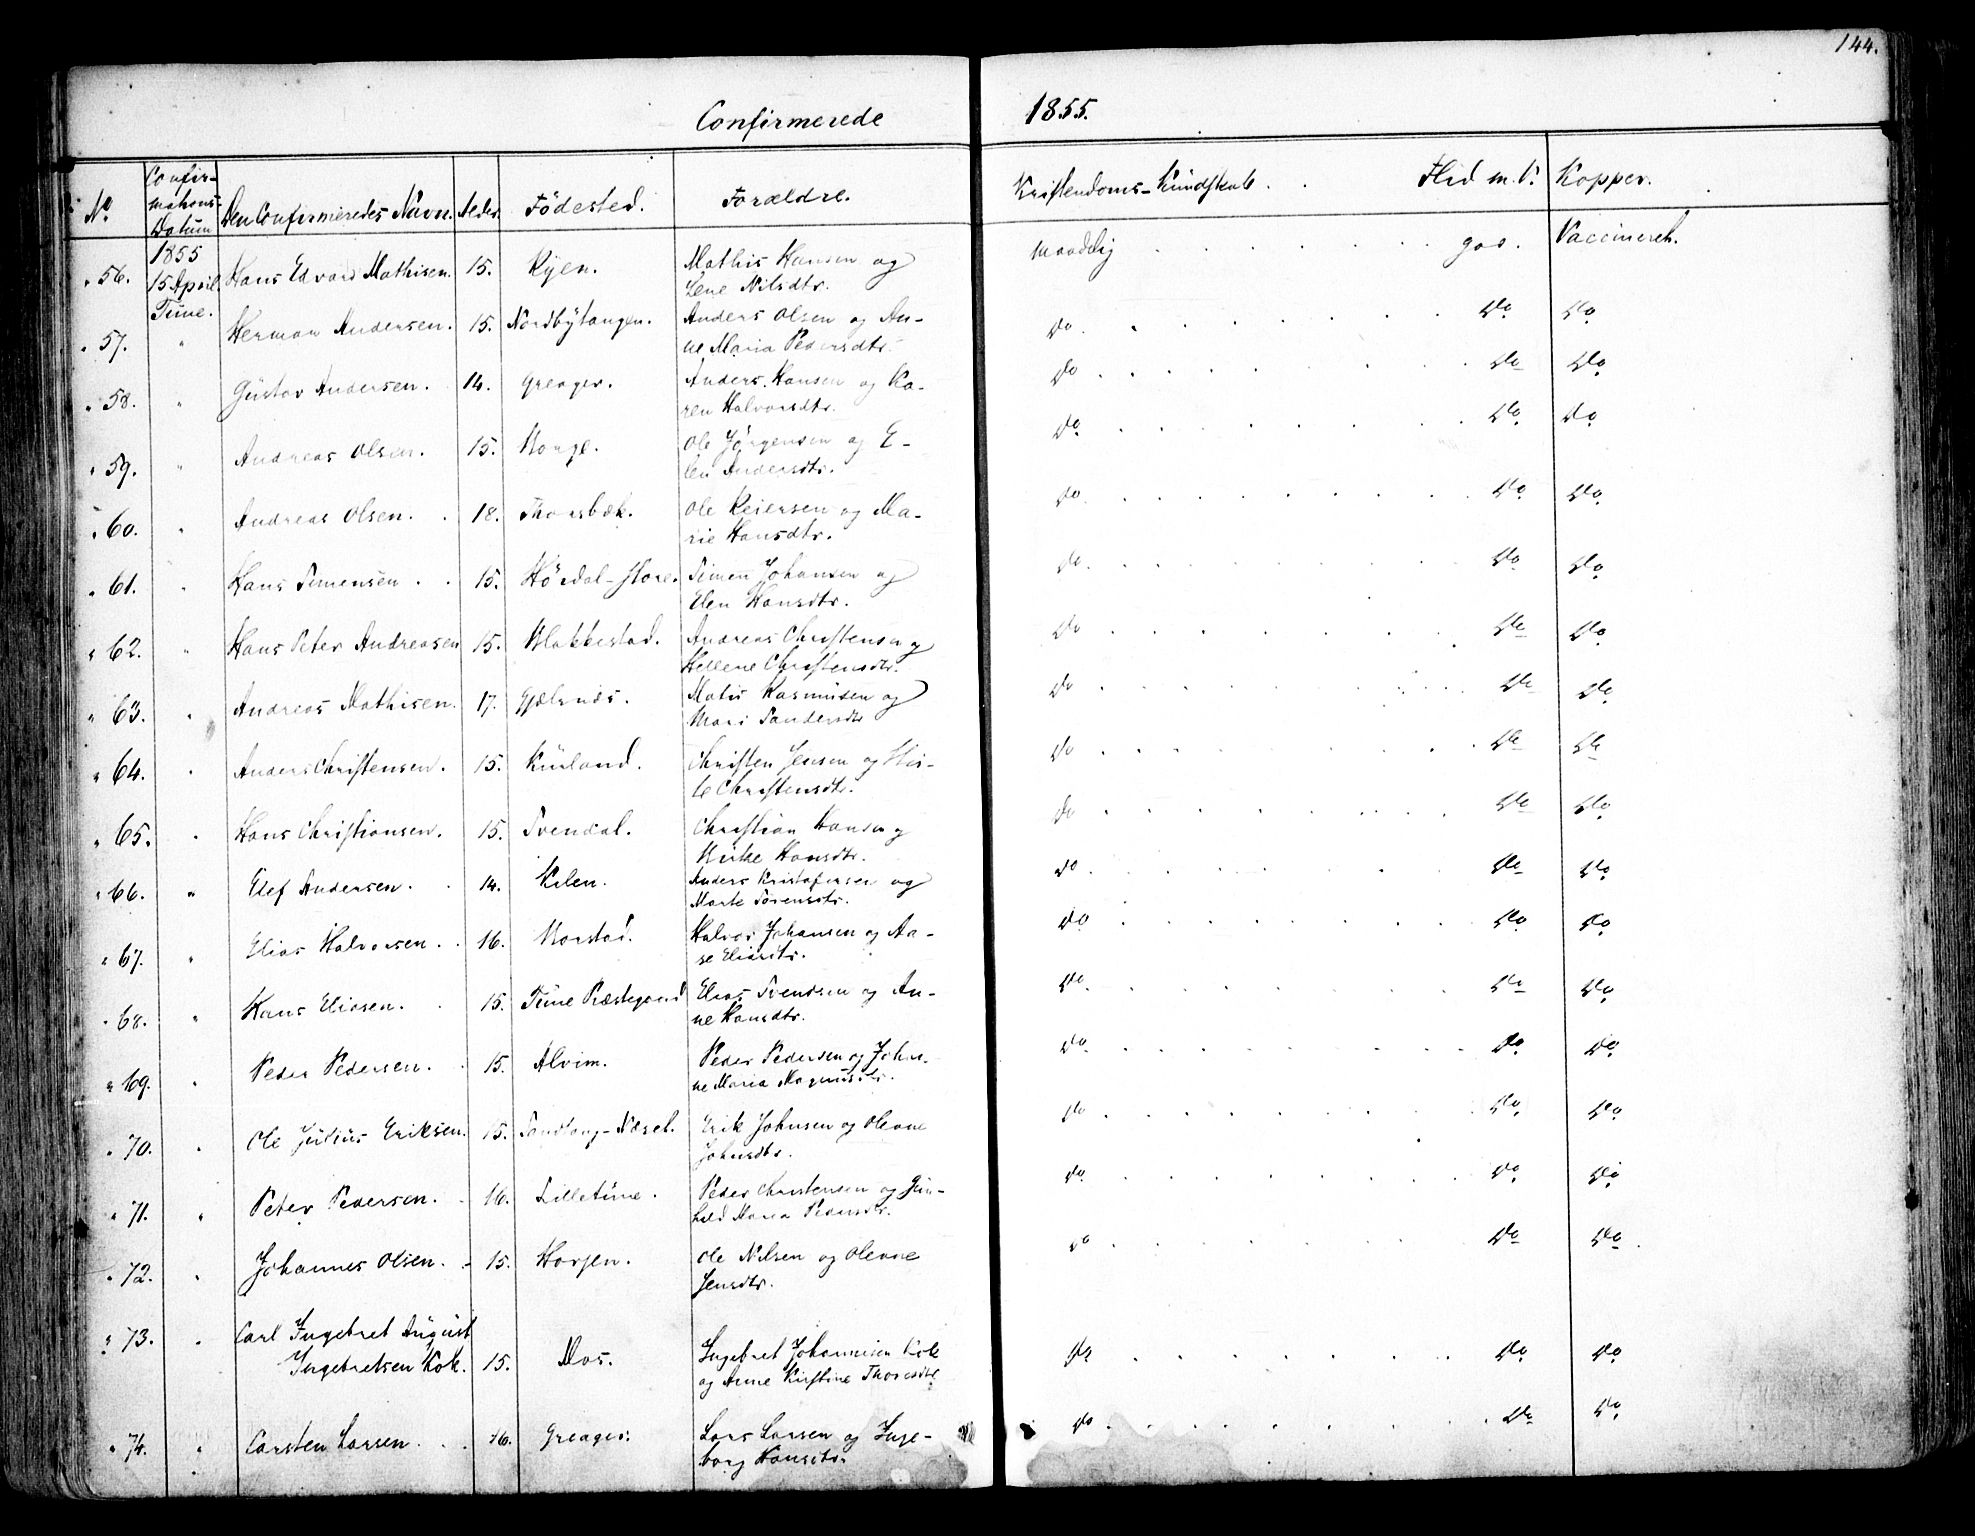 144.
Confirmerede 1855.
No Confirmations-Datum Den Confirmeredes Navn. Alder. Födested. Forældre. Kristendoms-Kundskab. Flid m.V. Kopper.
1855
" 56. 15 April Hans Edvard Mathisen. 15. Ryen. Mathis Hansen og maadelig god. Vaccineret.
Tune. Lene Nilsdtr.
" 57. " Herman Andersen. 15. Nordbytangen. Anders Olsen og An- Do. Do Do
ne Maria Pedersdtr.
" 58. " Gustav Andersen. 14. Greager. Anders Hansen og Ka- Do Do Do
ren Halvorsdtr.
" 59. " Andreas Olsen. 15. Hauge. Ole Jörgensen og E- Do Do Do
len Andersdtr.
" 60. " Andreas Olsen. 18. Thorsbæk. Ole Reiersen og Ma- Do Do Do
rie Hansdtr.
" 61. " Hans Simensen. 15. Hördal-store. Simen Johansen og Do Do Do
Elen Hansdtr.
" 62. " Hans Peter Andreasen 15. Blakkestad. Andreas Christensen og Do Do Do
Hellene Christensdtr.
" 63. " Andreas Mathisen. 17. Gjælsnæs. Matis Rasmusen og Do Do Do
Mari Sandersdtr
" 64. " Anders Christensen. 15. Kurland. Christen Jensen og Do Do Do
Christensdtr.
" 65. " Hans Christiansen. 15. Svendal. Christian Hansen og Do Do Do
Hansdtr.
" 66. " Elef Andersen. 14. Kilen. Anders Kristofersen og Do Do Do
Marte Sörensdtr.
" 67. " Elias Halvorsen. 16. Norstad. Halvor Johansen og Aa- Do Do Do
se Eliasdtr.
" 68. " Hans Eliasen. 15. Tune Præstegaard Elias Svendsen og An- Do Do Do
ne Hansdtr.
" 69. " Peder Pedersen. 15. Alvim. Peder Pedersen og Johan- Do Do Do
ne Maria Magnusdtr.
" 70. " Ole Julius Eriksen. 15. Sandtang-Næset. Erik Johnsen og Oleane Do Do Do
Johnsdtr.
" 71. " Peter Pedersen. 16. Lilletune. Peder Christensen og Gun- Do Do Do
hild Maria Pedersdtr.
" 72. " Johannes Olsen. 15. Haugen. Ole Nilsen og Oleane Do Do Do.
Jensdtr.
" 73. " Carl Ingebret August
Ingebretsen Kok. 15. Mos. Ingebret Johannesen Kok Do Do Do
og Anne Kirstine Thoresdtr
" 74. " Carsten Larsen. 16. Greager. Lars Larsen og Inge- Do Do Do
borg Hansdtr.